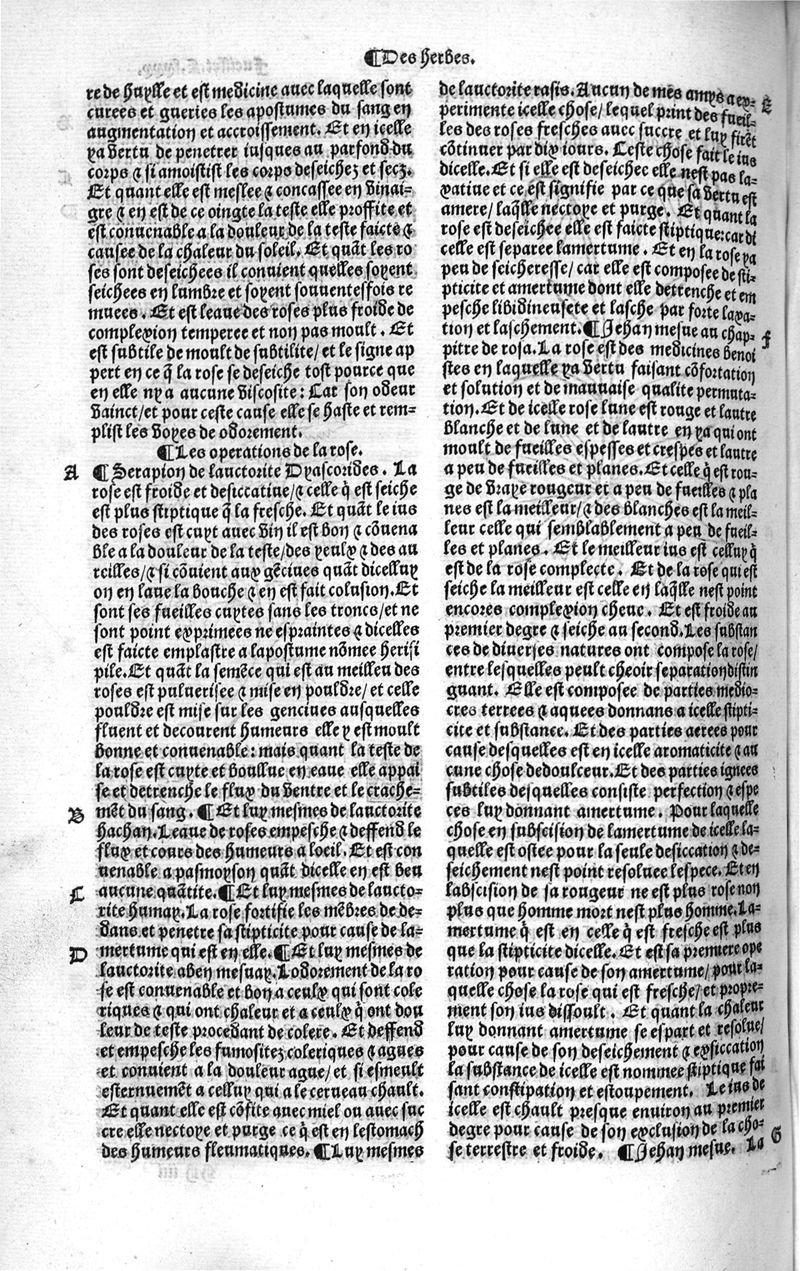 ¶Des herbes.
re de huylle et est medicine auec laquelle sont
curees et gueries les apostumes du sang en
augmentation et accroissement. Et en icelle
ya vertu de penetrer iusques au parfond du
corps ⁊ si amoistist les corps deseichez et secz.
Et quant elle est meslee ⁊ concassee en vinai-
gre ⁊ en est de ce oingte la teste elle proffite et
est conuenable a la douleur de la teste faicte ⁊
causee de la chaleur du soleil. Et quāt les ro
ses sont deseichees il conuient quelles soyent
seichees en lumbre et soyent souuentesfois re
muees. Et est leaue des roses plus froide de
complexion temperee et non pas moult. Et
est subtile de moult de subtilite/ et le signe ap
pert en ce q̄ la rose se deseiche tost pource que
en elle ny a aucune viscosite: Car son odeur
vainct/et pour ceste cause elle se haste et rem-
plist les voyes de odorement.
¶Les operations de la rose.
A ¶Serapion de lauctorite Dyascorides. La
rose est froide et desiccatiue/⁊ celle q̄ est seiche
est plus stiptique q̄ la fresche. Et quāt le ius
des roses est cuyt auec vin il est bon ⁊ cōuena
ble a la douleur de la teste/des yeulx ⁊ des au
reilles/⁊ si cōuient aux gēciues quāt dicelluy
on en laue la bouche ⁊ en est fait colusion. Et
sont ses fueilles cuytes sans les troncs/et ne
sont point exprimees ne espraintes ⁊ dicelles
est faicte emplastre a lapostume nōmee herisi
pile. Et quāt la semēce qui est au meilleu des
roses est puluerisee ⁊ mise en pouldre/ et celle
pouldre est mise sur les genciues ausquelles
fluent et decourent humeurs elle y est moult
bonne et conuenable: mais quant la teste de
la rose est cuyte et boullue en eaue elle appai
se et detrenche le flux du ventre et le crache-
B mēt du sang. ¶Et luy mesmes de lauctorite
hachan. Leaue de roses empesche ⁊ deffend le
flux et cours des humeurs a loeil. Et est con
uenable a pasmoyson quāt dicelle en est beu
C aucune quātite. ¶Et luy mesmes de laucto-
rite humay. La rose fortifie les mēbres de de-
dans et penetre sa stipticite pour cause de la-
D mertume qui est en elle. ¶Et luy mesmes de
lauctorite aben mesuay. Lodorement de la ro
se est conuenable et bon a ceulx qui sont cole
riques ⁊ qui ont chaleur et a ceulx q̄ ont dou
leur de teste procedant de colere. Et deffend
et empesche les fumositez coleriques ⁊ agues
et conuient a la douleur ague/ et si esmeult
esternuemēt a celluy qui a le cerueau chault.
Et quant elle est cōfite auec miel ou auec suc
cre elle nectoye et purge ce q̄ est en lestomach
des humeurs fleumatiques. ¶Luy mesmes
de lauctorite rasis. Aucun de mes amys a ex-
E perimente icelle chose/ lequel print des fueil-
les des roses fresches auec succre et luy firēt
cōtinuer par dix iours. Ceste chose fait le ius
dicelle. Et si elle est deseichee elle nest pas la-
xatiue et ce est signifie par ce que sa vertu est
amere/ laq̄lle nectoye et purge. Et quant la
rose est deseichee elle est faicte stiptique: car di
celle est separee lamertume. Et en la rose ya
peu de seicheresse/ car elle est composee de sti-
pticite et amertume dont elle detrenche et em
pesche libidineusete et lasche par forte laxa-
tion et laschement. ¶Jehan mesue au chap- f
pitre de rosa. La rose est des medicines benoi
stes en laquelle ya vertu faisant cōfortation
et solution et de mauuaise qualite permuta-
tion. Et de icelle rose lune est rouge et lautre
blanche et de lune et de lautre en ya qui ont
moult de fueilles espesses et crespes et lautre
a peu de fueilles et planes. Et celle q̄ est rou-
ge de vraye rougeur et a peu de fueilles ⁊ pla
nes est la meilleur/⁊ des blanches est la meil-
leur celle qui semblablement a peu de fueil-
les et planes. Et le meilleur ius est celluy q̄
est de la rose complecte. Et de la rose qui est
seiche la meilleur est celle en laq̄lle nest point
encores complexion cheue. Et est froide au
premier degre ⁊ seiche au second. Les substan
ces de diuerses natures ont compose la rose/
entre lesquelles peult cheoir separation distin
guant. Elle est composee de parties medio-
cres terrees ⁊ aquees donnans a icelle stipti-
cite et substance. Et des parties aerees pour
cause desquelles est en icelle aromaticite ⁊ au
cune chose de doulceur. Et des parties ignees
subtiles desquelles consiste perfection ⁊ espe
ces luy donnant amertume. Pour laquelle
chose en subscision de lamertume de icelle la-
quelle est ostee pour la seule desiccation ⁊ de-
seichement nest point resoluee lespece. Et en
labscision de sa rougeur ne est plus rose non
plus que homme mort nest plus homme. La-
mertume q̄ est en celle q̄ est fresche est plus
que la stipticite dicelle. Et est sa premiere ope
ration pour cause de son amertume/ pour la-
quelle chose la rose qui est fresche/ et propre-
ment son ius dissoult. Et quant la chaleur
luy donnant amertume se espart et resolue/
pour cause de son deseichement ⁊ exsiccation
la substance de icelle est nommee stiptique fai
sant constipation et estoupement. Le ius de
icelle est chault presque enuiron au premier
degre pour cause de son exclusion de la cho- G
se terrestre et froide. ¶Jehan mesue. La